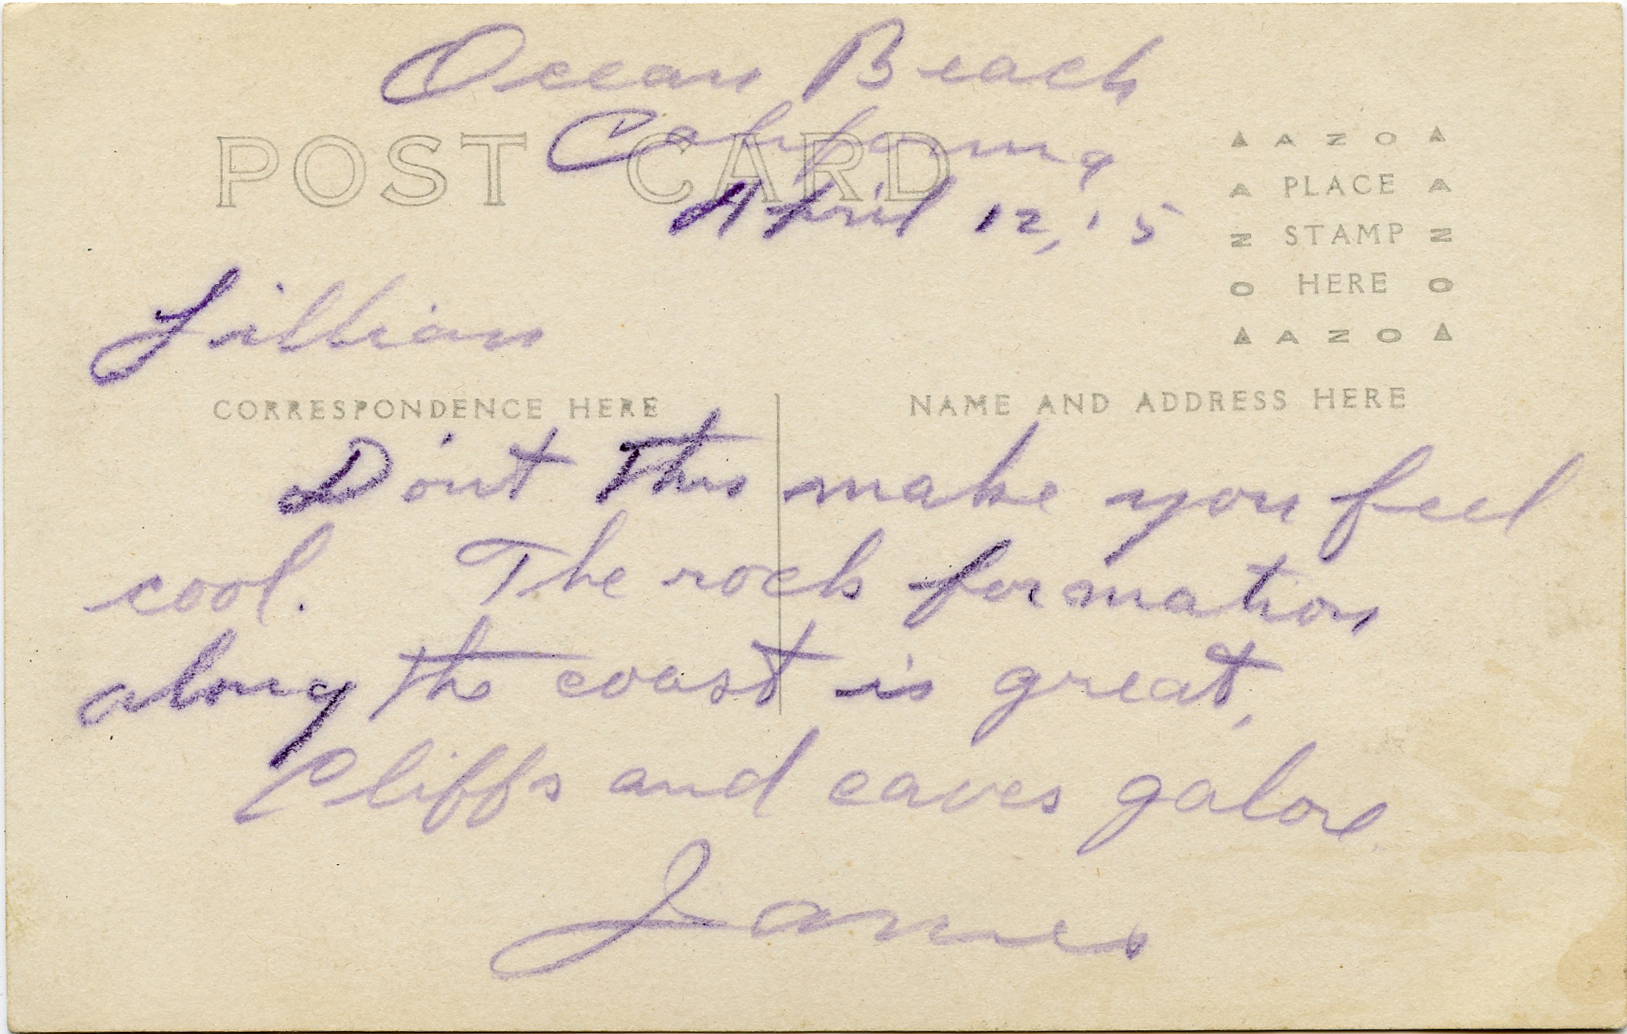 Ocean Beach
California
POST CARD
April 12, '15
▲ A Z O ▲
A PLACE A
N STAMP N
O HERE O
▲ A Z O ▲
Lillian
CORRESPONDENCE HERE
NAME AND ADDRESS HERE
Don't this make you feel
cool. The rock formation
along the coast is great,
Cliffs and caves galore.
James